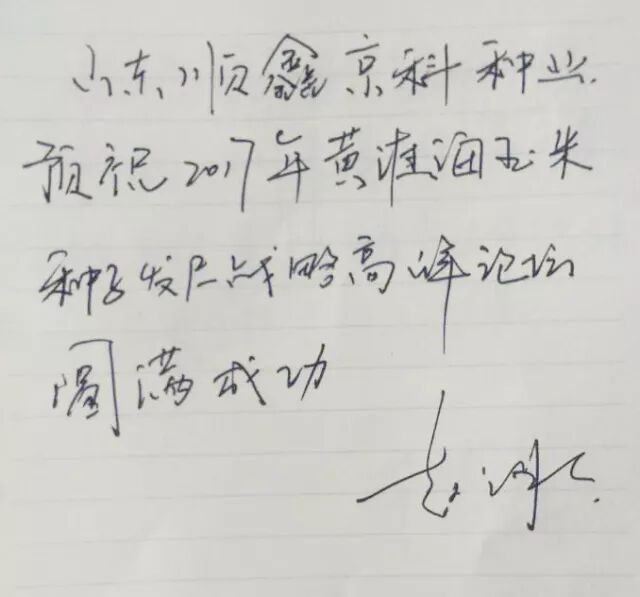 山东顺鑫京科种业
预祝2017年黄淮海玉米
种子发展战略高峰论坛
圆满成功